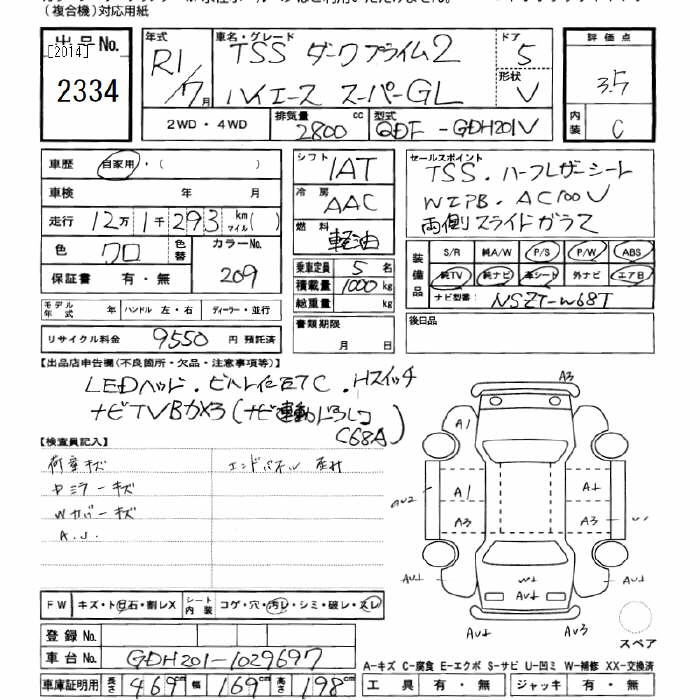 （複合機）対応用紙
出品No.
[2014]
2334
年式 R1/7月
車名・グレード TSS ダークプライム2
ハイエース スーパーGL
ドア 5
形状 V
評価点 3.5
内装 C
2WD・4WD
排気量 2800 cc
型式 QDF-GDH201V
車歴 自家用・( )
車検 年 月
走行 12万1千293 km マイル( )
色 クロ
色替
カラーNo. 209
保証書 有・無
モデル年式 年 ハンドル 左・右 ディーラー・並行
リサイクル料金 9550 円 預託済
シフト IAT
冷房 AAC
燃料 軽油
乗車定員 5 名
積載量 1000 kg
総重量 kg
書類期限
月 日
セールスポイント
TSS・ハーフレザーシート
WIPB・AC100V
両側スライドガラス
装備品
S/R 純A/W P/S P/W ABS
純TV 純ナビ 革シート 外ナビ エアB
ナビ型番 NSZT-W68T
後日品
【出品店申告欄(不良箇所・欠品・注意事項等)】
LEDヘッド・ビルトインETC・Hスイッチ
ナビTVBカメラ(ナビ連動ドラレコ
C68A)
【検査員記入】
荷室キズ
エンドパネル
ミラーキズ
Wカバーキズ
A.J.
A3
A1
A1
A3
A3
AU2
AU1
AU1
W1
AU1
AU2
AU3
スペア
FW キズ・ト石・割レX シート内装 コゲ・穴・汚レ・シミ・破レ・スレ
登録No.
車台No. GDH201-1029697
車庫証明用 長さ 469cm 幅 169cm 高さ 198cm
A-キズ C-腐食 E-エクボ S-サビ U-凹ミ W-補修 XX-交換済
工具 有・無 ジャッキ 有・無